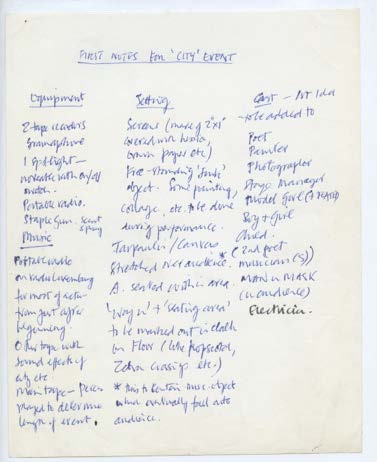 FIRST NOTES FOR 'CITY' EVENT
Equipment
2 tape recorders
Gramophone
1 spotlight —
workable with on/off
switch.
Portable radio.
Staple Gun. scent
spray
Music
Portable radio
on radio Luxembourg
for most of action
from just after
beginning.
Other tape with
sound effects of
city etc.
main tape — Pieces
played to determine
length of event.
Setting
Screens (made of 2"x1"
covered with
brown paper etc)
Free-standing 'junk'
object. Some painting,
collage, etc. to be done
during performance.
Tarpaulin / Canvas
stretched over audience. *
A. seated within area.
'Way in' + 'seating area'
to be marked out in cloth
on Floor (like hopscotch,
Zebra crossings etc.)
* this to contain misc. object
which eventually fall onto
audience.
Cast — 1st Idea
— to be added to
Poet
Painter
Photographer
Stage Manager
Model Girl
Boy + Girl
Child.
(2nd poet
musician(s))
MAN IN MASK
(in audience)
Electrician.